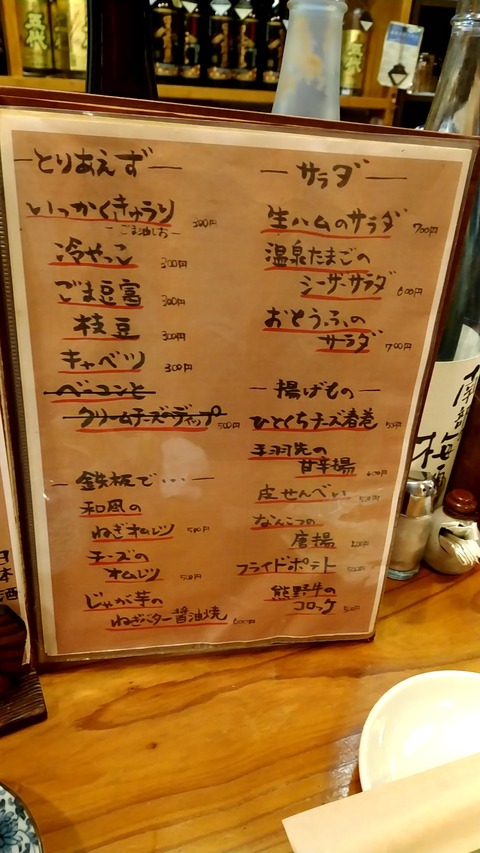 とりあえず
いっかくきゅうり 300円
ごま油しお
冷やっこ 300円
ごま豆富 300円
枝豆 300円
キャベツ 300円
ベーコンと
クリームチーズディップ 500円
鉄板で・・・
和風の
ねぎオムレツ 500円
チーズの
オムレツ 500円
じゃが芋の
ねぎバター醤油焼 600円
サラダ
生ハムのサラダ 700円
温泉たまごの
シーザーサラダ 600円
おとうふの
サラダ 700円
揚げもの
ひとくちチーズ春巻
手羽先の
甘辛揚 600円
皮せんべい 500円
なんこつの
唐揚 500円
フライドポテト 500円
熊野牛の
コロッケ 500円
日本酒
梅酒